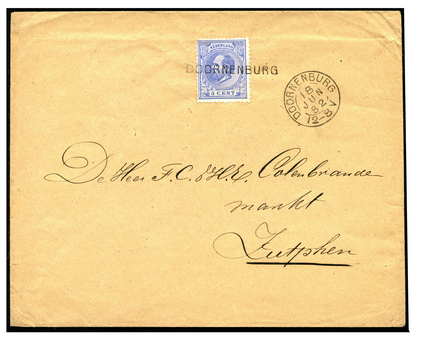 NEDERLAND
5 CENT
DOORNENBURG
DOORNENBURG
18
JUN
82
12-8V
De Heer F. C. & H. E. Colenbrande
markt
Zutphen